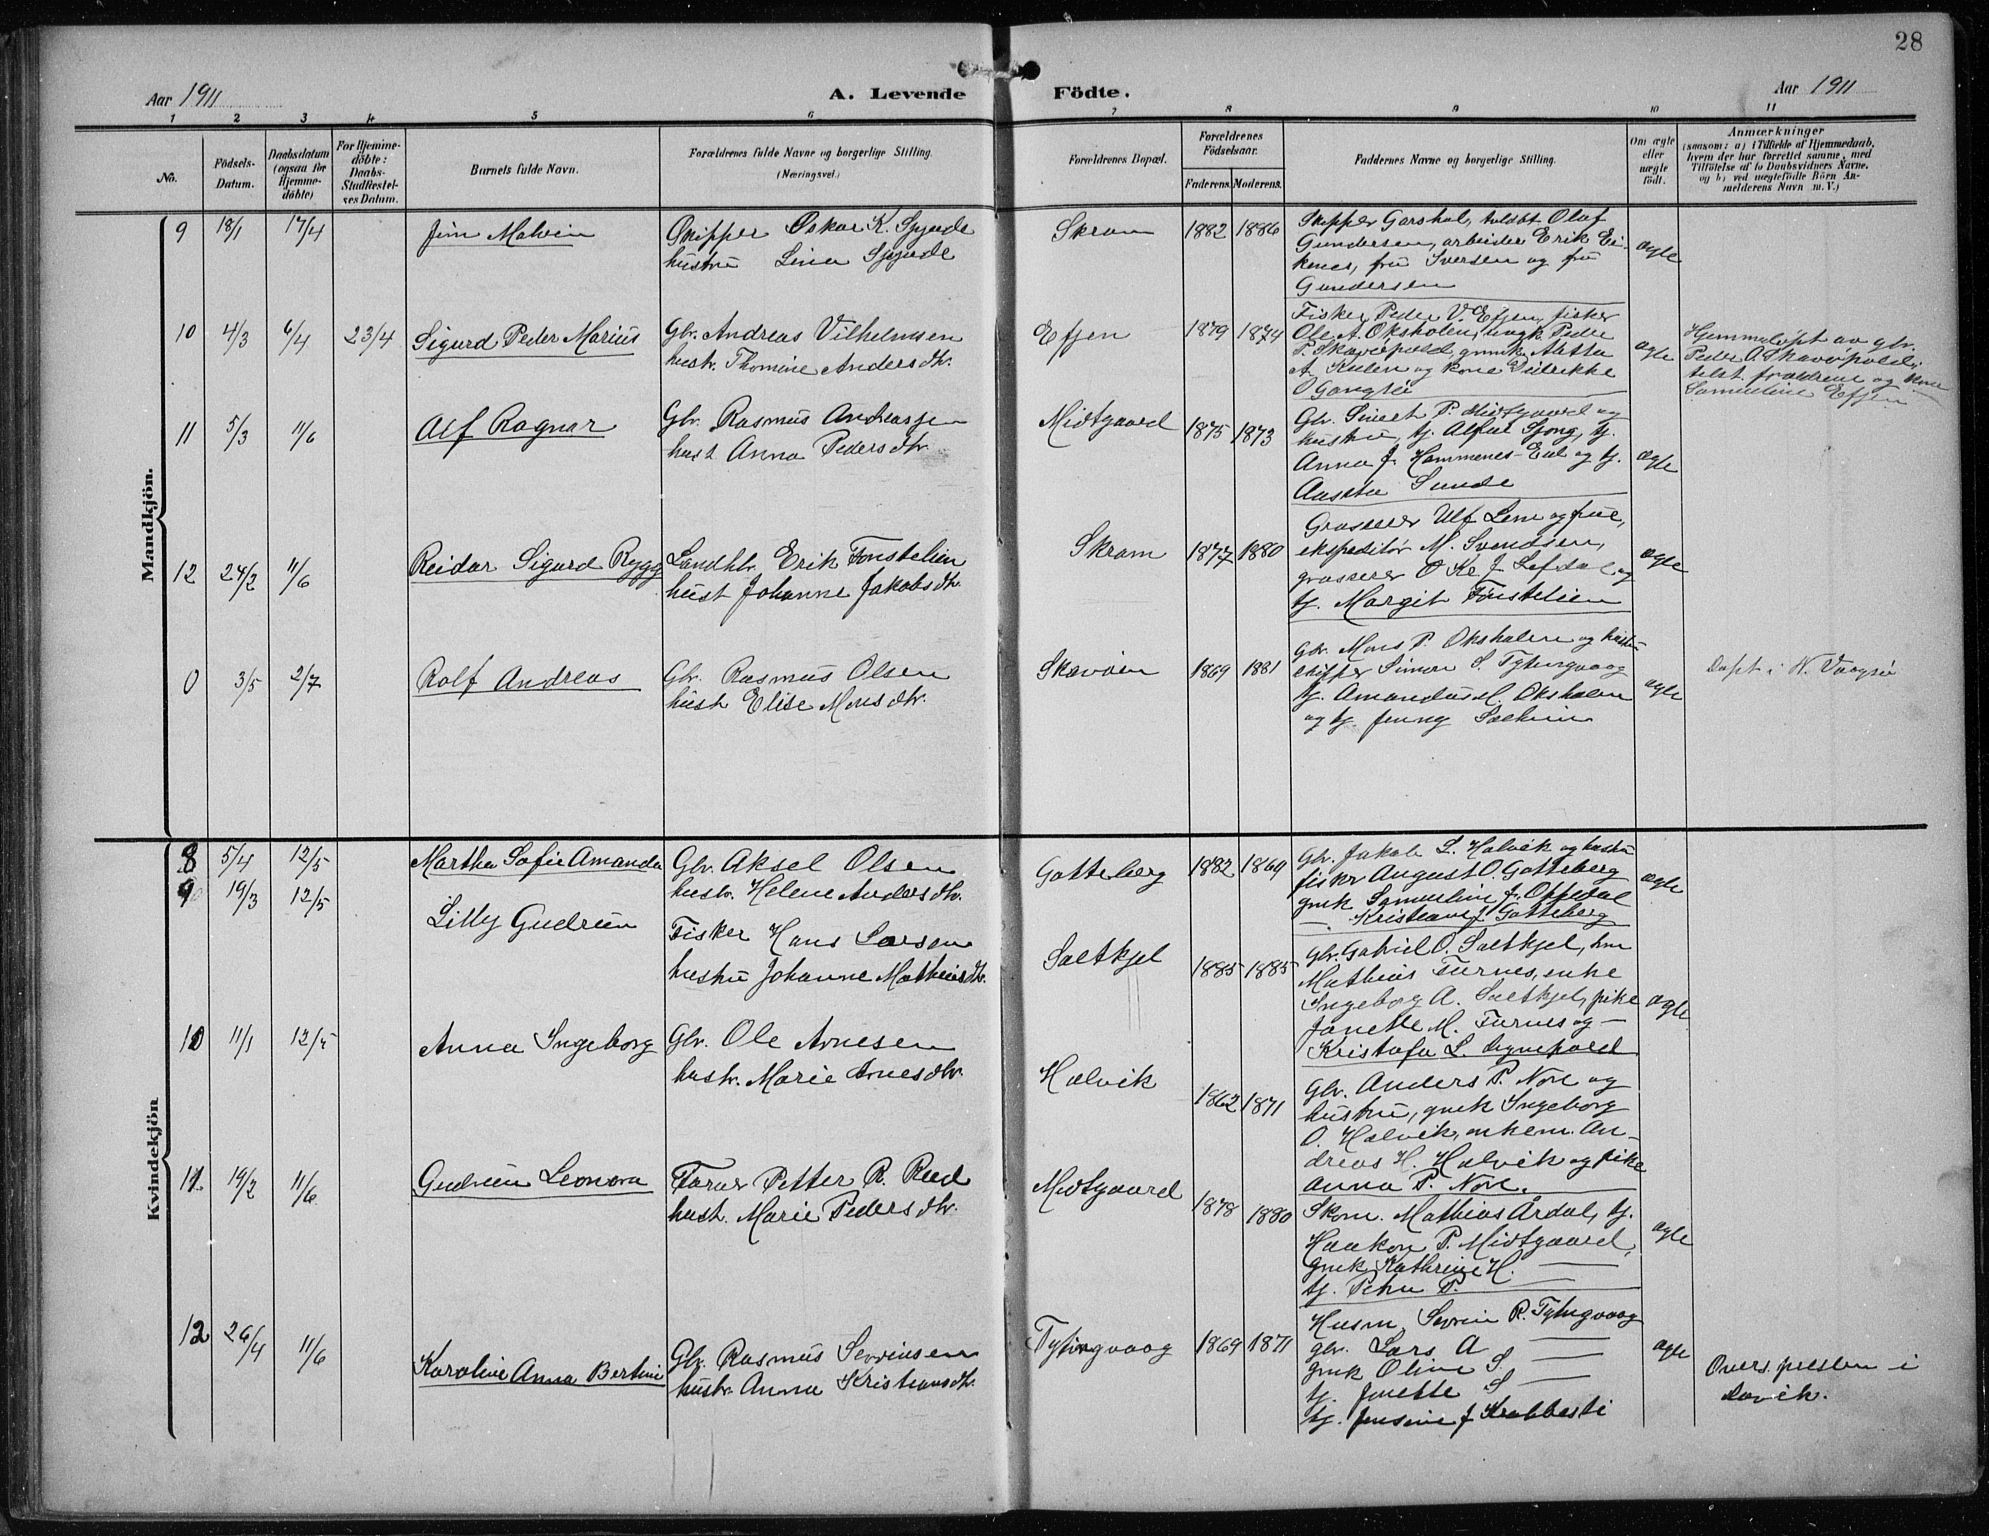 28
Aar 1911
A. Levende Födte.
Aar 1911
1 2 3 4 5 6 7 8 9 10 11
No.
Födsels-Datum.
Daabsdatum (ogsaa för Hjemme-döbte)
For Hjemme-döbte: Daabs-Stadfæstel-ses Datum.
Barnets fulde Navn.
Forældrenes fulde Navne og borgerlige Stilling.
(Næringsvei.)
Forældrenes Bopæl.
Forældrenes Födselsaar.
Faderens. Moderens.
Faddernes Navne og borgerlige Stilling.
Om ægte eller uægte födt.
Anmærkninger
(saasom: a) i Tilfælde af Hjemmedaab,
hvem der har forrettet samme, med
Tilföielse af to Daabsvidners Navne.
og b) ved uægtefödte Börn An-
melderens Navn m. V.)
Mandkjön.
9 18/1 17/4 Jim Malvin
Skipper Oskar K.
hustru Lina
Skram 1882 1886
Skipper Garshol, toldbt Olaf
Gundersen, arbeider Erik Ei-
kenes, fru Iversen og fru
Gundersen
ægte
10 4/3 6/4 23/4 Sigurd Peder Marius
Gbr. Andreas Vilhelmsen
hustr. Thomine Andersdtr.
Efjen 1879 1874
Fisker Peder V. Efjen, fisker
Ole A. Oksholen, ungk. Peder
P. Skavöpold, gmk. Aletta
A. og kone Didrikke
O
ægte
Hjemmedöpt av gbr.
Peder A. Skavöpold,
tilst. forældrene og kone
Samueline Efjen
11 5/3 11/6 Alf Ragnar
Gbr. Rasmus Andreassen
hust Anna Pedersdtr.
Midtgaard 1875 1873
Gbr. Sivert P. Midtgaard og
hustru, tj.
Anna J. Hammenes-Eid og tj.
Aasta Sunde
ægte
12 24/2 11/6 Reidar Sigurd Rygg
Landhl. Erik Tonstelien
hust Johanne Jakobsdtr.
Skram 1877 1880
Grosserer Ulf Lem og frue,
ekspeditör M. Svendsen,
grosserer O J Lefdal og
tj. Margit Tonstelien
ægte
0 3/5 2/7 Rolf Andreas
Gbr. Rasmus Olsen
hust Elise Monsdtr.
Skavöen 1869 1881
Gbr. Mons P. Oksholen og hustru
skipper Simon S. Tytingvaag
tj. Amandus M. Oksholen
og tj. Jenny
ægte
Döpt i N. Vaagsö
Kvindekjön
8 5/4 12/5 Martha Sofie Amanda
Gbr. Aksel Olsen
hustr. Helene Andersdtr.
Gotteberg 1882 1869
Gbr. Jakob L. Halvik og hustru
fisker August O. Gotteberg
gmk Samueline J. Offedal
— Kristiane J. Gotteberg
ægte
9 19/3 12/5 Lilly Gudrun
Fisker Hans Larsen
hustru Johanne Mathiasdtr.
Saltkjel 1885 1885
Gbr. Gabriel O. Saltkjel, hm
Mathias Furnes, enke
Ingeborg A. Saltkjel, pike
Janette M. Furnes og —
Kristofa L.
ægte
10 11/1 12/5 Anna Ingeborg
Gbr. Ole Arnesen
hustr. Marie Arnesdtr.
Halvik 1862 1871
Gbr. Anders P. Nore og
hustru, gmk Ingeborg
O. Halvik, enkem. An-
dreas H. Halvik og pike
Anna P. Nore.
11 19/2 11/6 Gudrun Leonora
Farver Petter R. Rud
hust. Marie Pedersdtr.
Midtgaard 1878 1880
Skom. Mathias Årdal, tj.
Haakon P. Midtgaard,
gmk Kathrine H. —
tj. Petra P. —
ægte
12 26/4 11/6 Karoline Anna Bertine
Gbr. Rasmus Severinsen
hustr. Anna Kristiansdtr.
Tytingvaag 1869 1871
Husm Severin R. Tytingvaag
gbr. Lars A —
gmk Oline S —
tj. Jonette S —
tj. Jensine J Krabbesti
ægte
Overs. presten i
Davik.